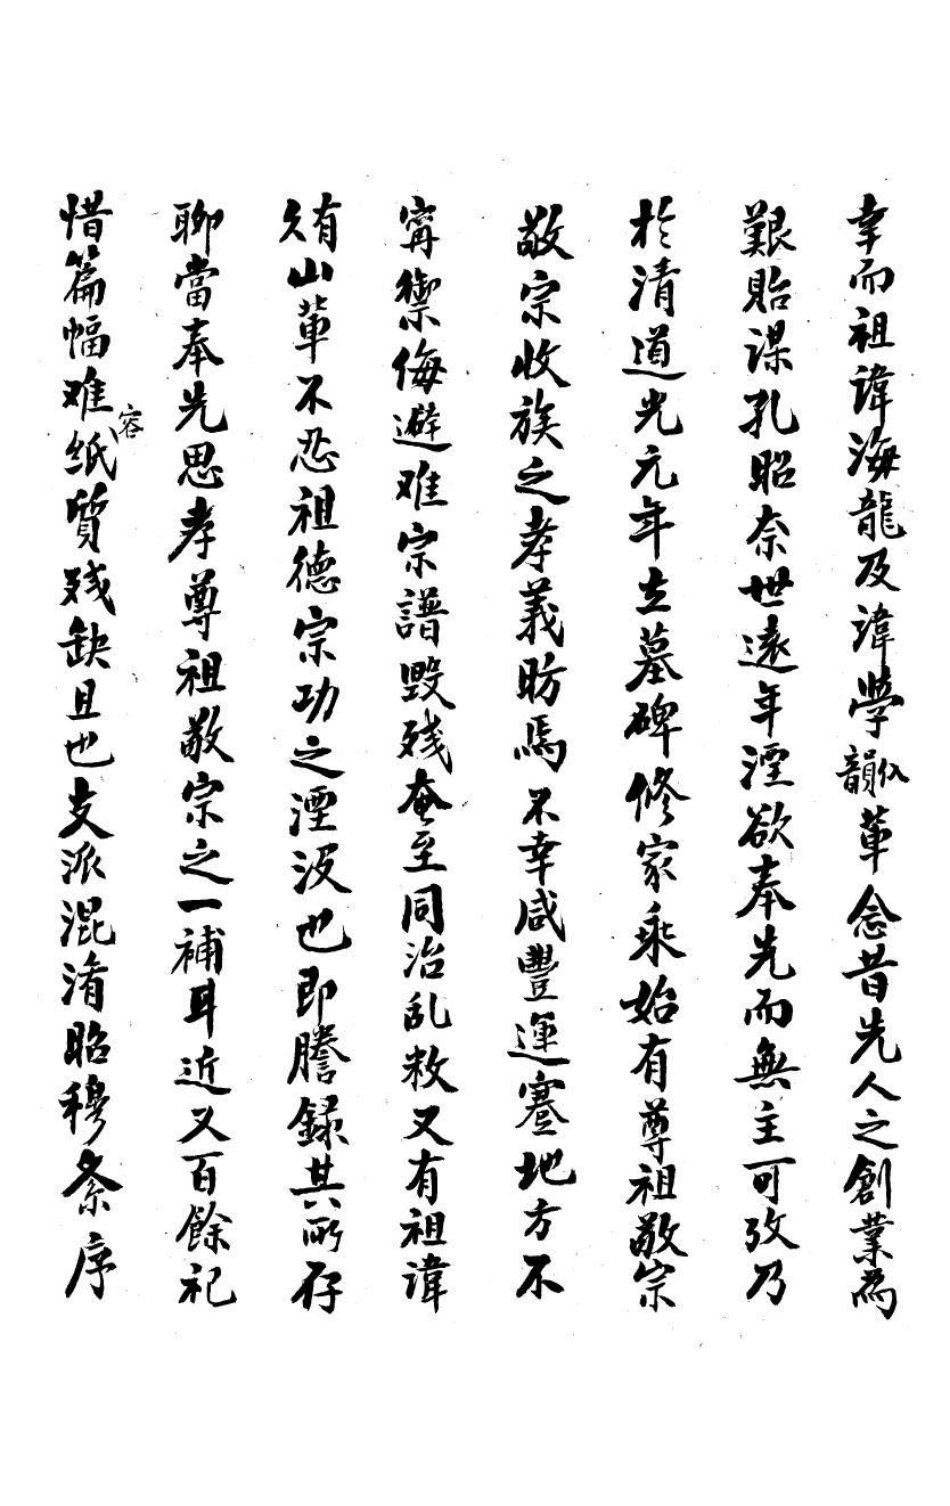 幸而祖諱海龍及諱學韻仈輩念昔先人之創業為
艱貽謀孔昭奈世遠年湮欲奉先而無主可攷乃
於清道光元年立墓碑修家乘始有尊祖敬宗
敬宗收族之孝義昉焉不幸咸豐運蹇地方不
甯禦侮避难宗譜毀残奄至同治乱敉又有祖諱
有山輩不忍祖德宗功之湮没也即謄録其所存
聊當奉先思孝尊祖敬宗之一補耳近又百餘祀
惜篇幅难容紙質残缺且也支派混淆昭穆紊序